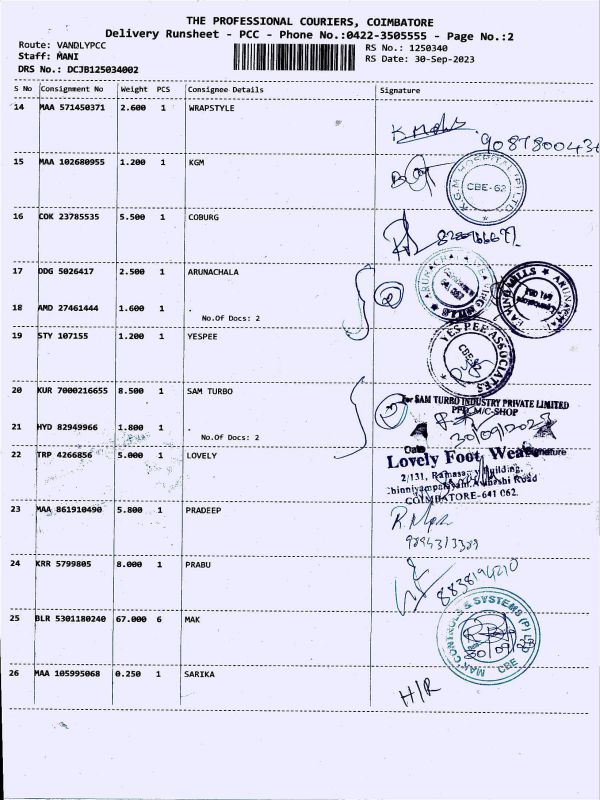 THE PROFESSIONAL COURIERS, COIMBATORE
Delivery Runsheet - PCC - Phone No.:0422-3505555 - Page No.:2
Route: VANDLYPCC RS No.: 1250340
Staff: MANI RS Date: 30-Sep-2023
DRS No.: DCJB125034002
S No Consignment No Weight PCS Consignee Details Signature
14 MAA 571450371 2.600 1 WRAPSTYLE
15 MAA 102680955 1.200 1 KGM
K.G.M. HOSPITAL (P) LTD
CBE-62
16 COK 23785535 5.500 1 COBURG
17 DDG 5026417 2.500 1 ARUNACHALA
18 AMD 27461444 1.600 1 .
No.Of Docs: 2
19 STY 107155 1.200 1 YESPEE
YES PEE ASSOCIATES
CBE-62
20 KUR 7000216655 8.500 1 SAM TURBO
For SAM TURBO INDUSTRY PRIVATE LIMITED
M/C-SHOP
21 HYD 82949966 1.800 1 .
30/09/2023
No.Of Docs: 2
Date Signature
22 TRP 4266856 5.000 1 LOVELY
Lovely Foot Wear
2/131, Building,
Road
COIMBATORE-641 062.
23 MAA 861910490 5.800 1 PRADEEP
9894313389
24 KRR 5799805 8.000 1 PRABU
8838194210
25 BLR 5301180240 67.000 6 MAK
MAK CONTROLS & SYSTEMS (P) LTD
30/09/23
CBE
26 MAA 105995068 0.250 1 SARIKA
H/R